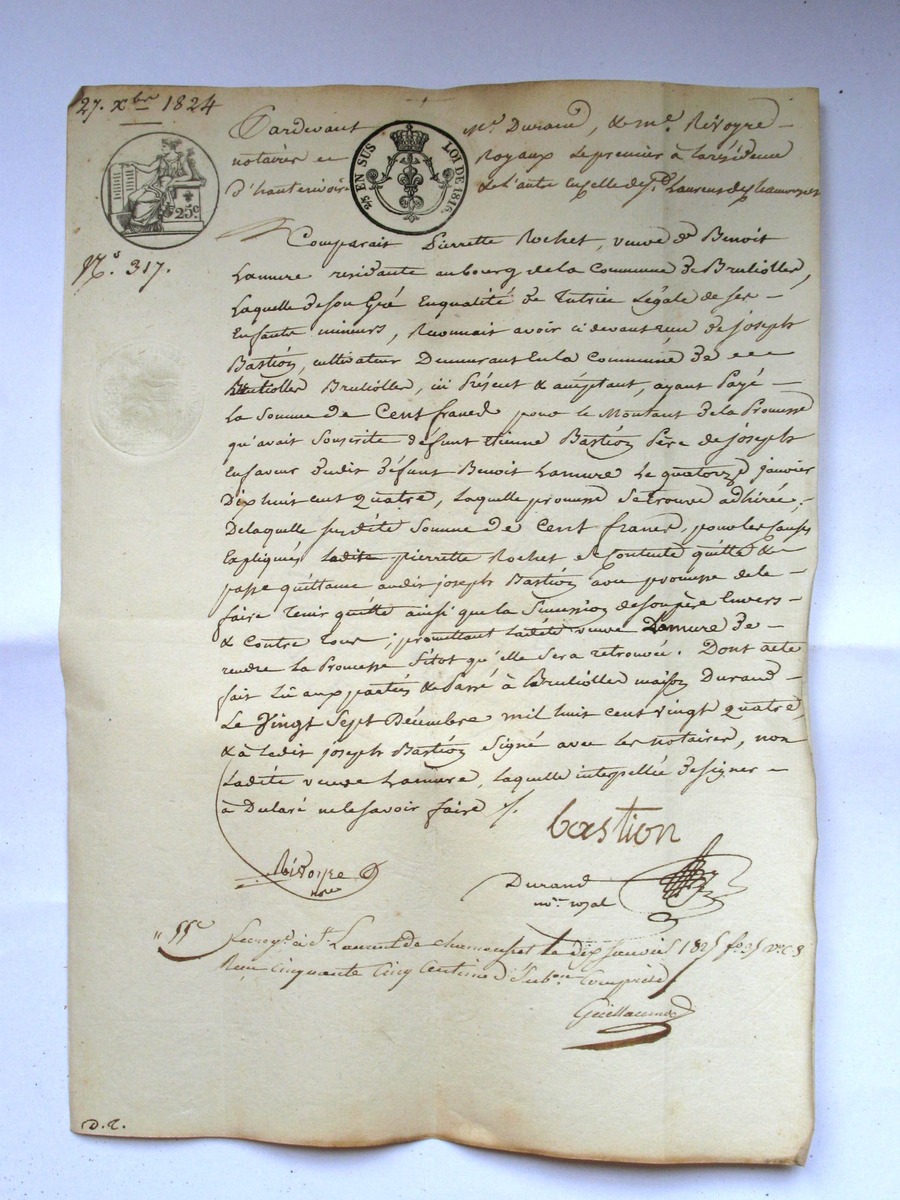 27. xbre 1824
Pardevant Me. Durand, & Me. Rivoyre
notaires Royaux le premier à la résidence
d'hauterivoire & l'autre en celle de St. Laurent de chamousset
25c
25c EN SUS LOI DE 1816.
No. 317.
Comparait Pierrette Rochet, veuve de Benoit
Lamure residante au bourg de la Commune de Bruliolles,
Laquelle de son Gré En qualité de Tutrice Légale de ses
Enfants mineurs, Reconnait avoir ci devant reçu de joseph
Bastion, cultivateur Demeurant En la Commune de
Brulioller Bruliolles, ici Présent & acceptant, ayant Payé
La Somme de Cent francs pour le Montant de la Promesse
qu'avait Souscrite défunt Etienne Bastion Père de joseph
En faveur dudit défunt Benoit Lamure Le quatorze janvier
Dix huit cent quatre, Laquelle promesse Se trouve adhirée;
De laquelle susdite Somme de Cent francs, pour les Causes
Expliquées Ladite pierrette Rochet Se Contente quitte &
passe quittance audit joseph Bastion avec promesse de le
faire Tenir quitte ainsi que la Succession de Son père Envers
& Contre Tous; promettant Ladite veuve Lamure de
rendre La Promesse Sitot qu'elle Sera retrouvée. Dont acte
fait Lû aux parties & Passé à Bruliolles maison Durand
Le Vingt Sept Décembre mil huit cent vingt quatre,
& à Ledit joseph Bastion Signé avec les notaires, non
Ladite veuve Lamure, Laquelle interpellée de signer
à Déclaré ne le savoir faire
bastion
Rivoyre
nore
Durand
nore royal
55c Enregé. à St. Laurent de chamousset Le dix janvier 1825 fo. 25 vo. c 8
Reçu Cinquante Cinq Centimes Subon Comprise
Guillaumod
D. C.